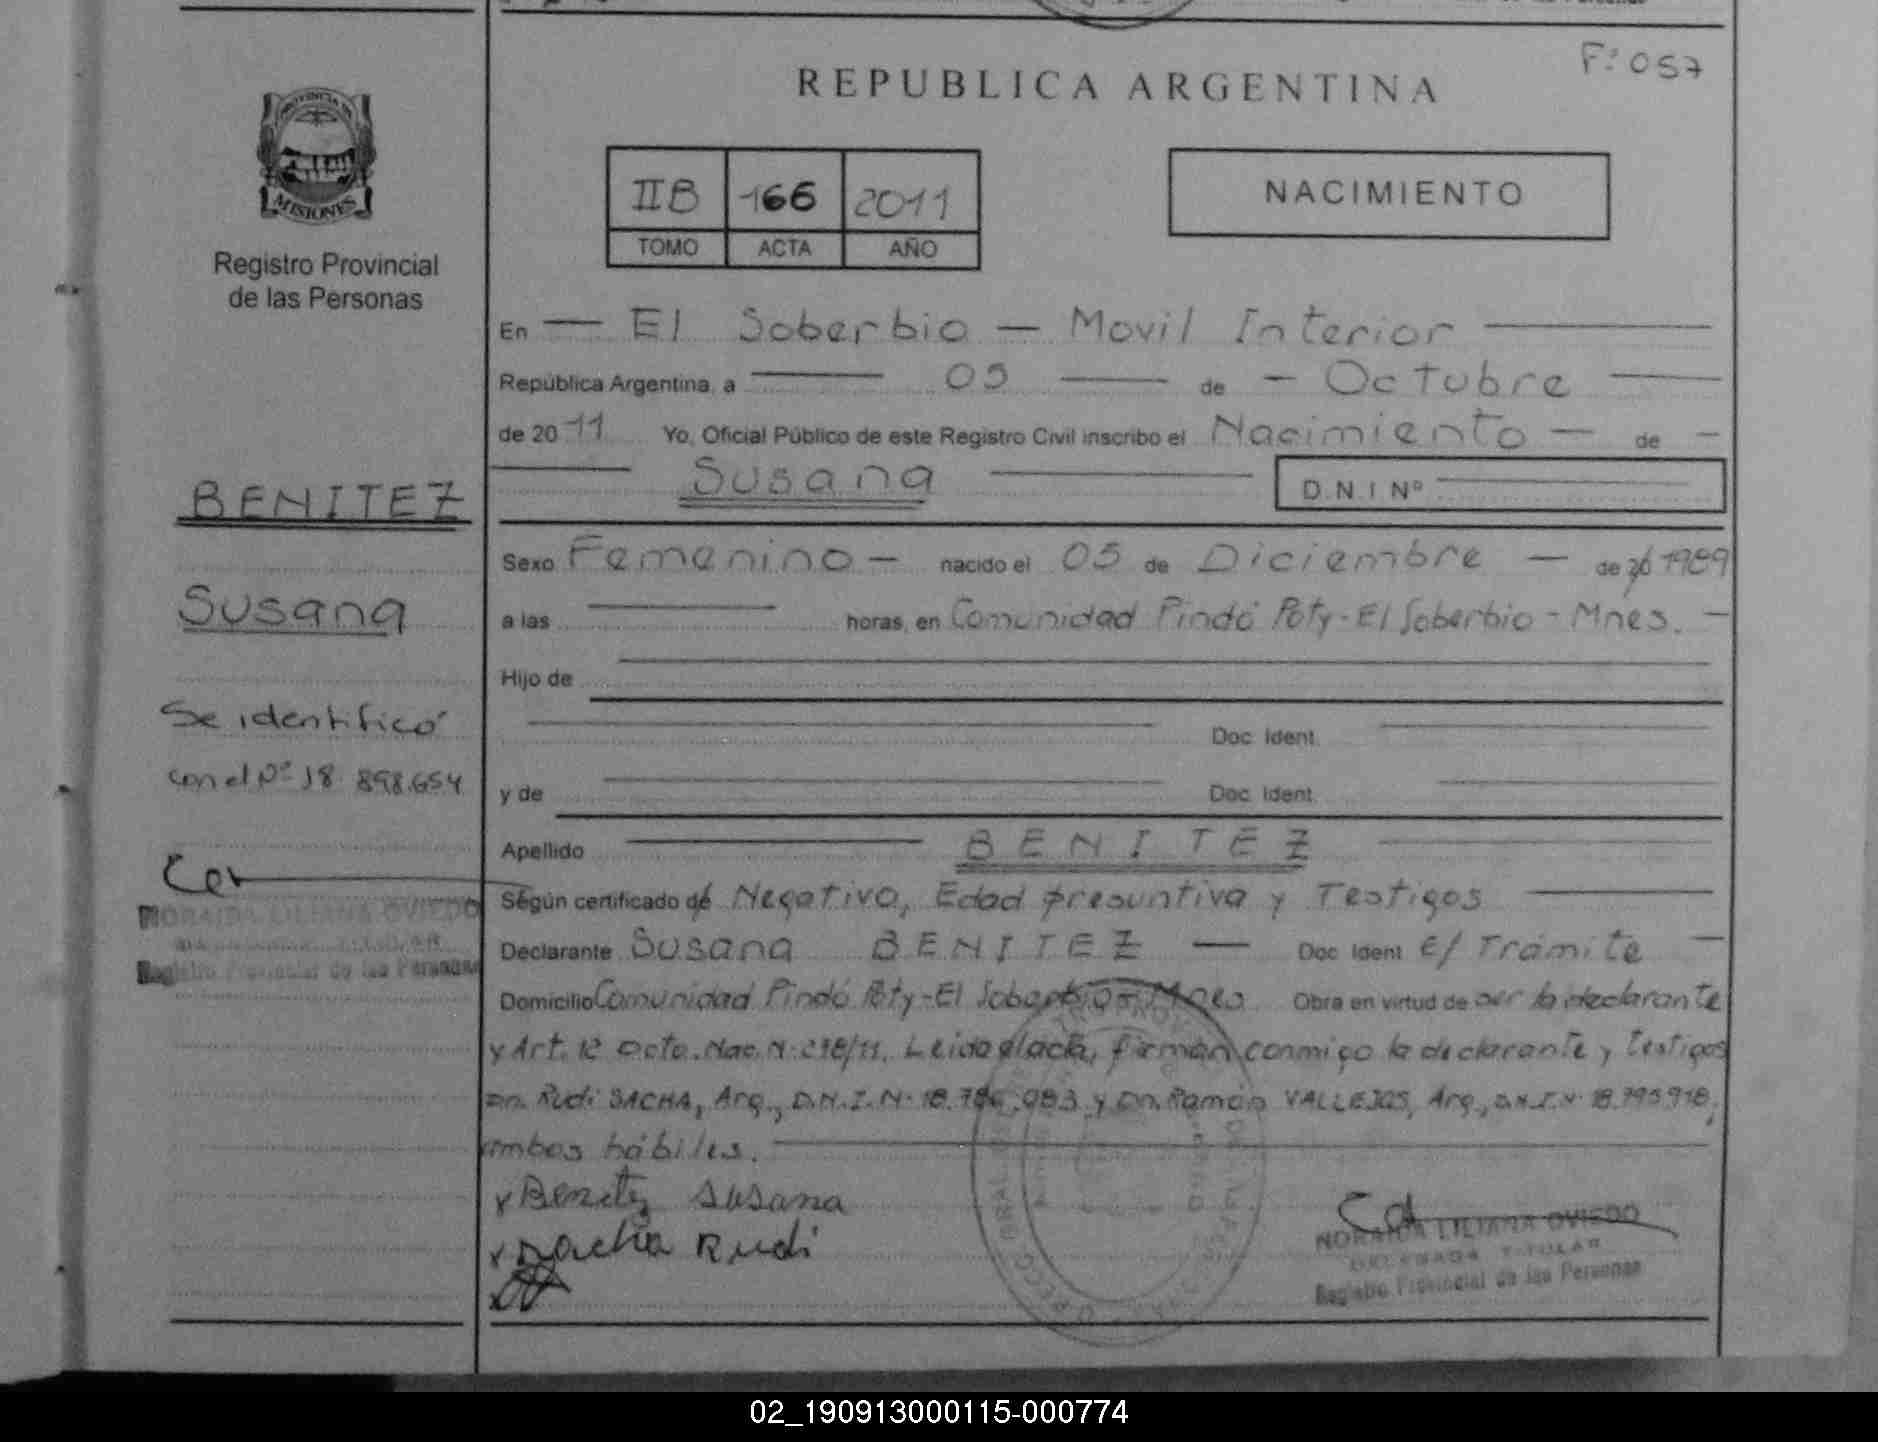 F: 057
REPUBLICA ARGENTINA
PROVINCIA DE
MISIONES
Registro Provincial
de las Personas
IIB 166 2011
TOMO ACTA AÑO
NACIMIENTO
En El Soberbio - Movil Interior
República Argentina, a 05 de - Octubre
de 2011 Yo, Oficial Público de este Registro Civil inscribo el Nacimiento - de -
Susana D.N.I Nº
BENITEZ
Susana
Se identificó
con el Nº 18.898.654
NORAIDA LILIANA OVIEDO
Registro Provincial de las Personas
Sexo Femenino - nacido el 05 de Diciembre - de 20 1989
a las horas, en Comunidad Pindó Poty - El Soberbio - Mnes. -
Hijo de
Doc. Ident.
y de Doc. Ident.
Apellido BENITEZ
Según certificado de Negativo, Edad presuntiva y Testigos
Declarante Susana BENITEZ - Doc. Ident. E/ Trámite -
Domicilio Comunidad Pindó Poty - El Soberbio - Mnes Obra en virtud de ser la declarante
y Art. 12 Dcto. Nac. N· 278/11. Leida el acta, firman conmigo la declarante y testigos
Dn. Rudi SACHA, Arg., D.N.I. N· 18.786.083 y Dn. Ramón VALLEJOS, Arg., D.N.I. N· 18.795918,
ambos hábiles.
x Benitez Susana
x Sacha Rudi
NORAIDA LILIANA OVIEDO
DELEGADA TITULAR
Registro Provincial de las Personas
02_190913000115-000774